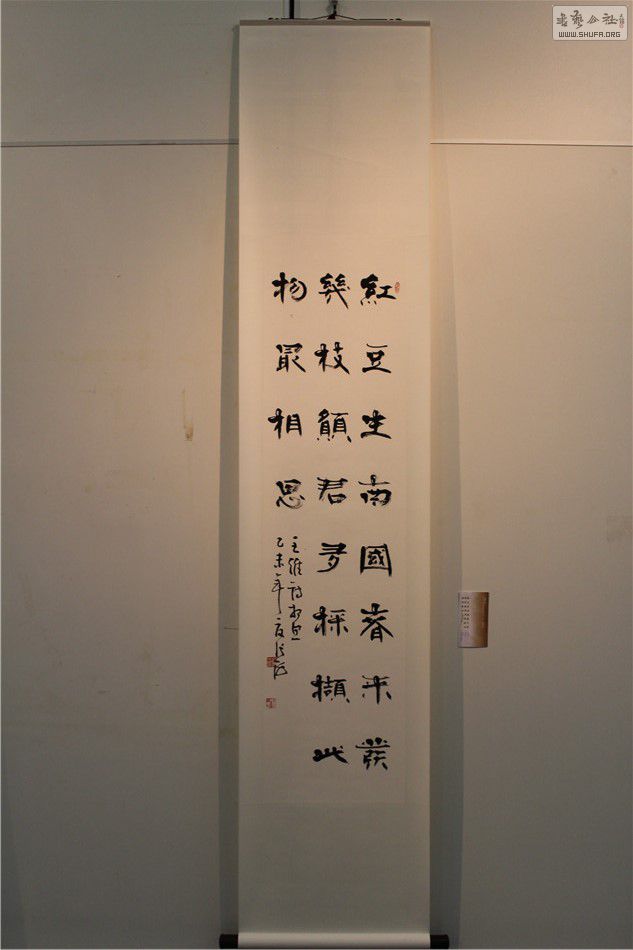 紅豆生南國春來發
幾枝願君多採擷此
物最相思
王維詩相思
乙未年夏
書藝公社
WWW.SHUFA.ORG